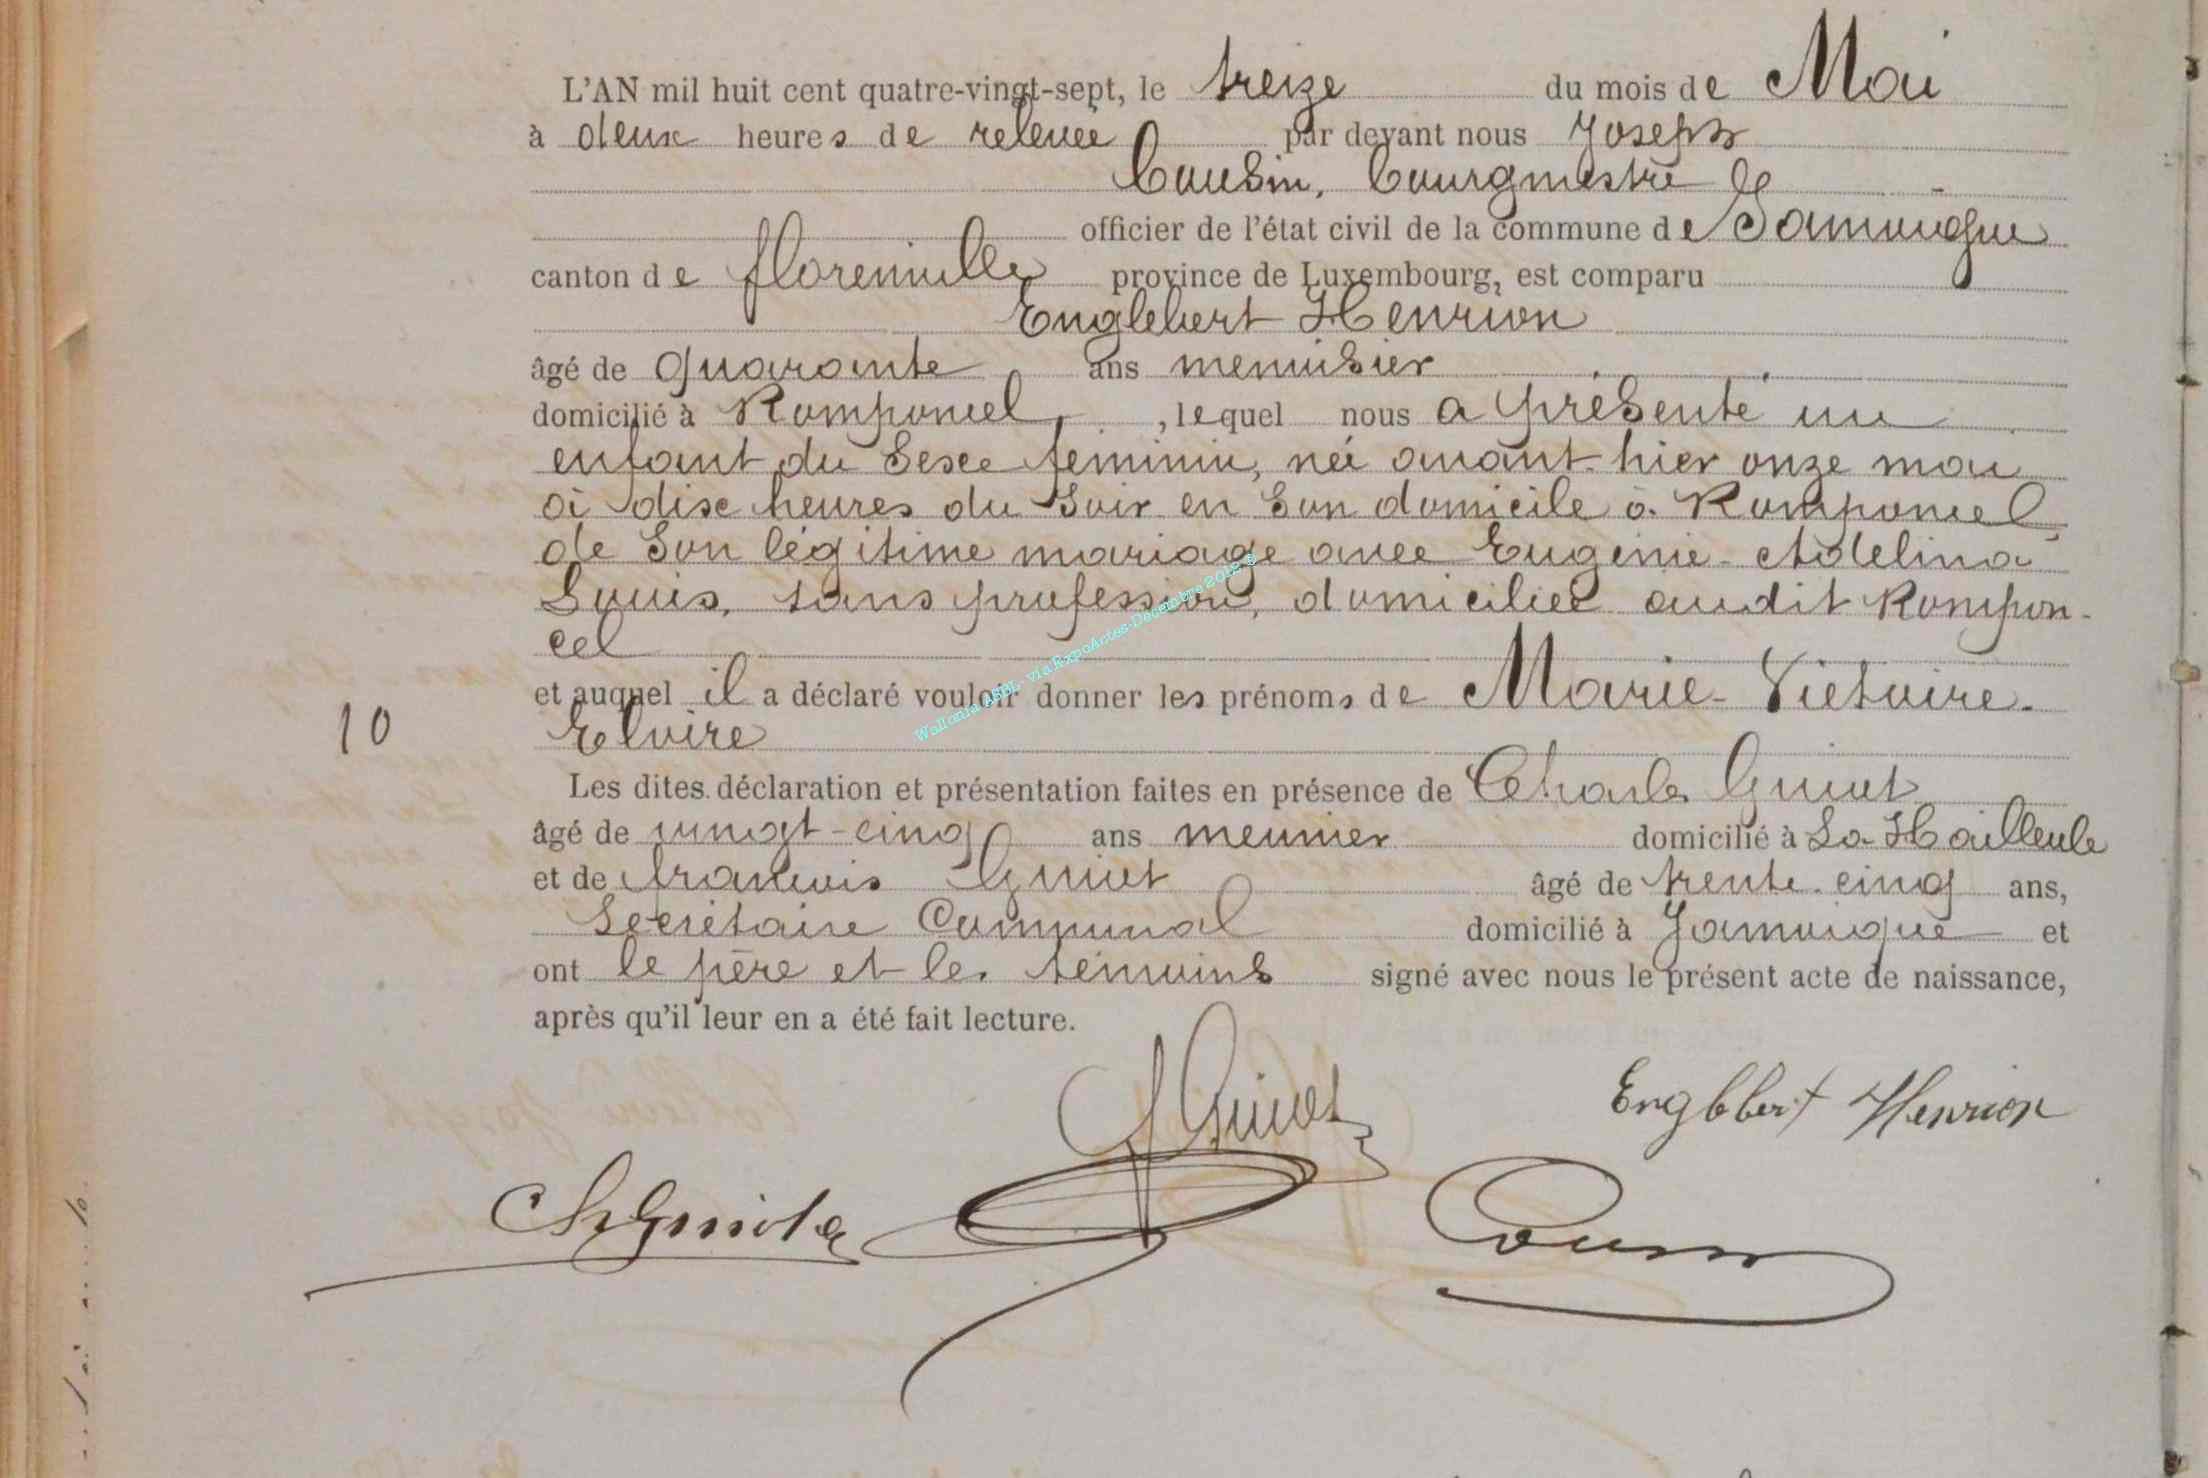 L'AN mil huit cent quatre-vingt-sept, le treize du mois de Mai
à deux heures de relevée par devant nous Joseph
Cousin, bourgmestre
officier de l'état civil de la commune de Jamoigne
canton de florenville province de Luxembourg, est comparu
Englebert Henrion
âgé de quarante ans menuisier
domicilié à Romponcel, lequel nous a présenté un
enfant du sexe féminin, né avant-hier onze mai
à dix heures du soir en son domicile à Romponcel,
de son légitime mariage avec Eugénie-Adelina
Louis, sans profession, domiciliée audit Rompon-
cel
et auquel il a déclaré vouloir donner les prénoms de Marie-Victoire-
Elvire
10
Les dites déclaration et présentation faites en présence de Charles Guiot
âgé de vingt-cinq ans meunier domicilié à La Hailleule
et de françois Guiot âgé de trente-cinq ans,
Secrétaire Communal domicilié à Jamoigne et
ont le père et les témoins signé avec nous le présent acte de naissance,
après qu'il leur en a été fait lecture.
Englebert Henrion
f Guiot
Ch Guiot
Cousin
Wallonia ASBL- via ExpoActes-Décembre 2012